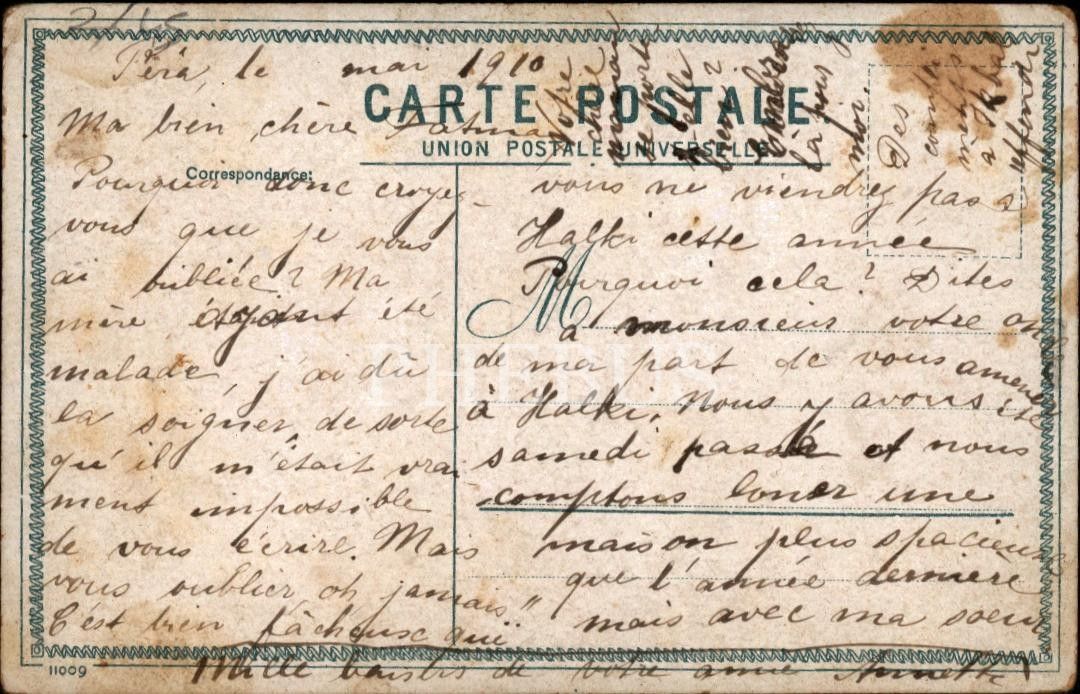 Péra, le mai 1910
CARTE POSTALE
UNION POSTALE UNIVERSELLE
Ma bien chère Fatma
Correspondance:
Pourquoi donc croyez-
vous que je vous
ai oubliée? Ma
mère ayant été
malade, j'ai dû
la soigner, de sorte
qu'il m'était vrai
ment impossible
de vous écrire. Mais
vous oublier oh jamais"
C'est bien fâcheuse que
vous ne viendrez pas
Halki cette année
Pourquoi cela? Dites
M
a monsieur votre
de ma part de vous amener
à Halki. Nous y avons été
samedi passé et nous
comptons louer une
maison plus spacieuse
que l'année dernière
mais avec ma soeur
Mille baisers de votre amie Annette
Votre
chère
maman
se porte
elle
bien?
embrassez
la pour
moi.
Des
compli
ments
a
effendi
11009
PHEBUS